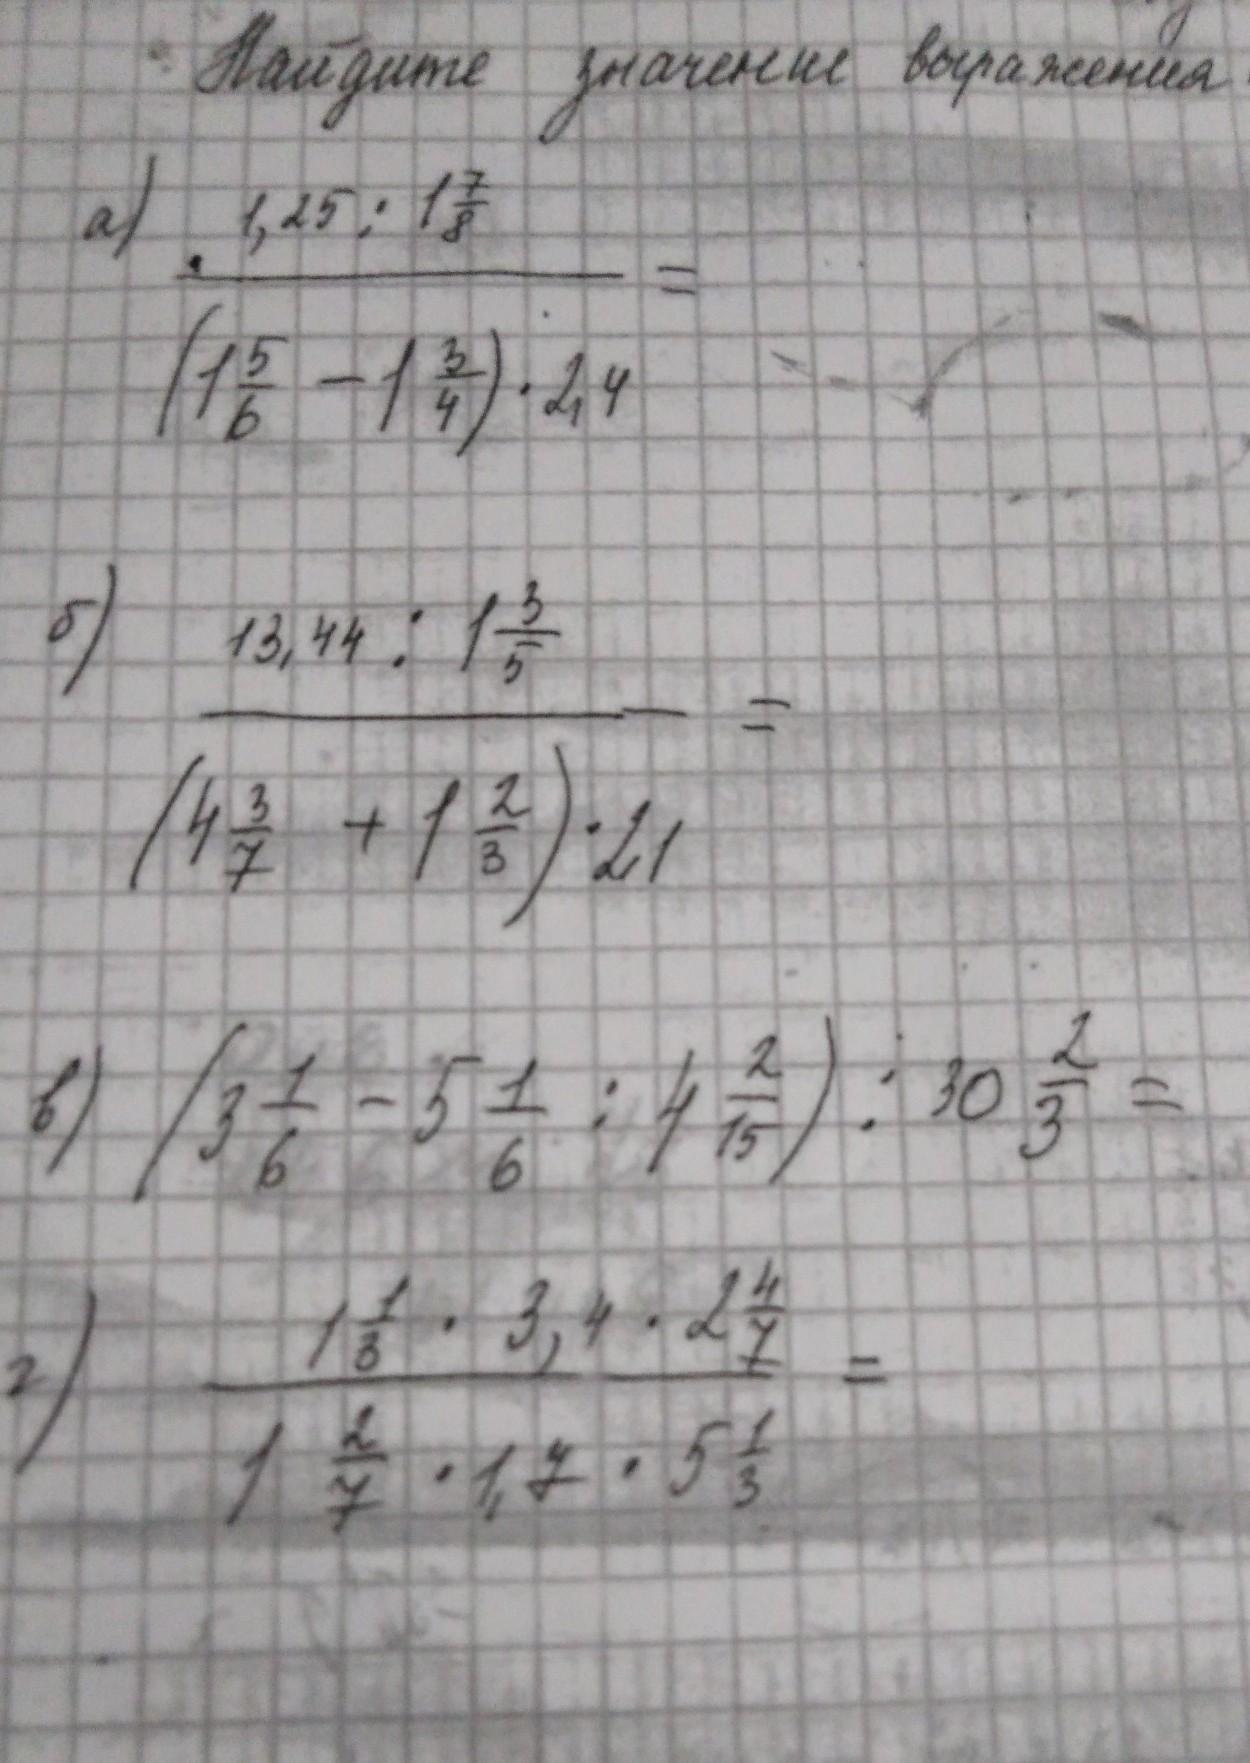 Найдите значение выражения
а) 1,25 : 1 7/8
=
(1 5/6 − 1 3/4) · 2,4
б) 13,44 : 1 3/5
=
(4 3/7 + 1 2/3) · 21
в) (3 1/6 − 5 1/6 : 4 2/15) : 30 2/3 =
г) 1 1/3 · 3,4 · 2 4/7
=
1 2/7 · 1,7 · 5 1/3